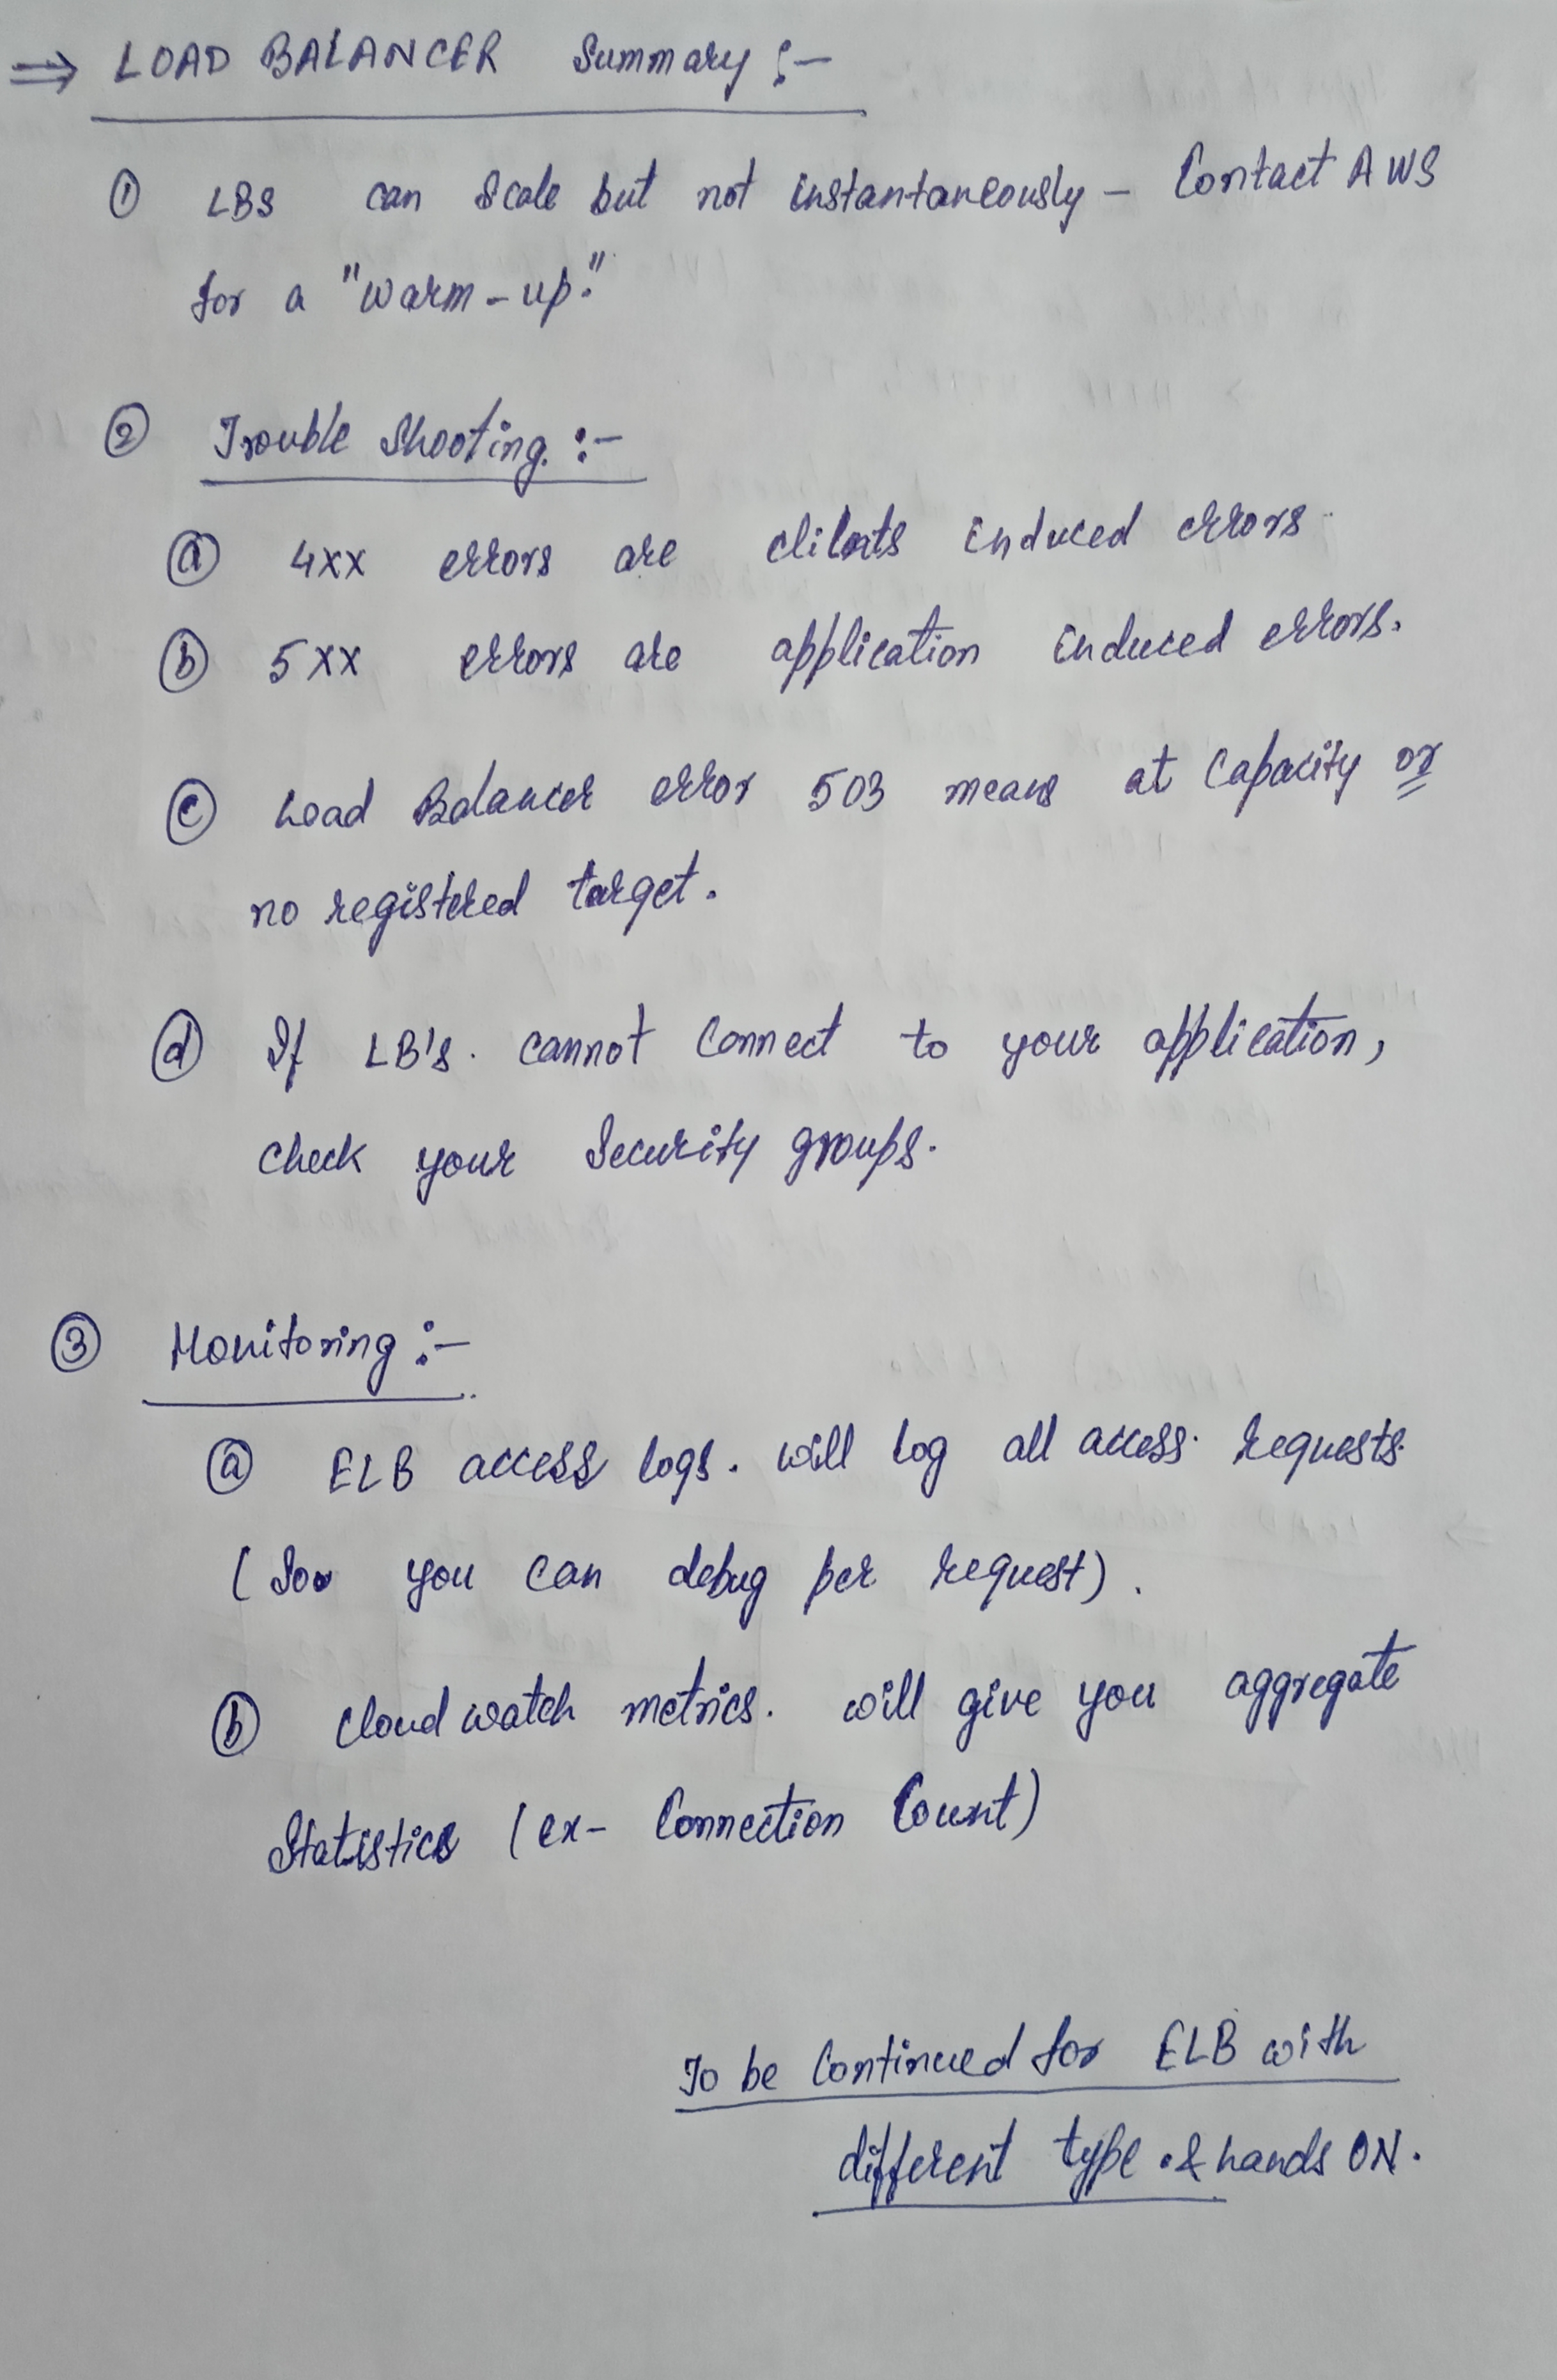 ⇒ LOAD BALANCER Summary :-
① LBs can scale but not instantaneously - Contact AWS
for a "warm-up."
② Trouble Shooting. :-
ⓐ 4xx errors are clients induced errors
ⓑ 5xx errors are application induced errors.
ⓒ Load Balancer error 503 means at Capacity or
no registered target.
ⓓ If LB's. cannot Connect to your application,
check your Security groups.
③ Monitoring :-
ⓐ ELB access logs. will log all access requests
(So you can debug per request).
ⓑ Cloud watch metrics. will give you aggregate
Statistics (ex- Connection Count)
To be Continued for ELB with
different type & hands ON.